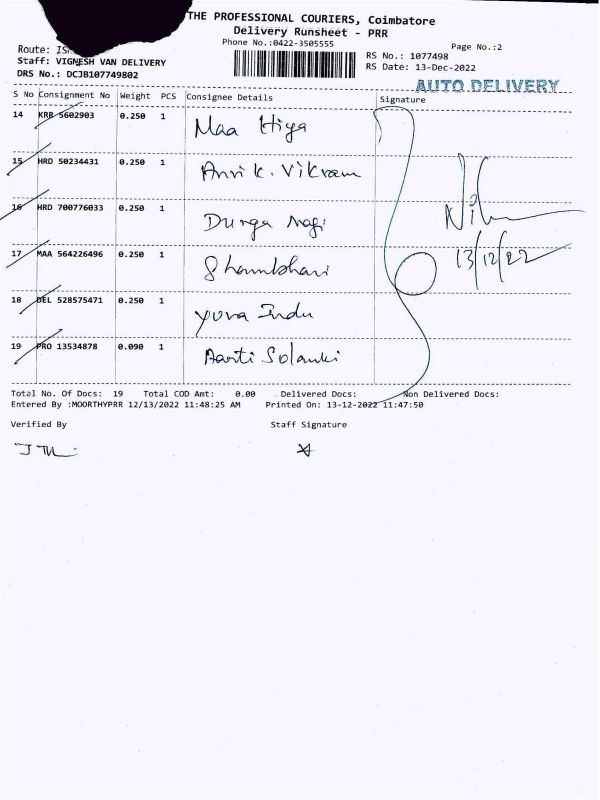 THE PROFESSIONAL COURIERS, Coimbatore
Delivery Runsheet - PRR
Phone No.:0422-3505555
Page No.:2
Route:
Staff: VIGNESH VAN DELIVERY
RS No.: 1077498
DRS No.: DCJB107749802
RS Date: 13-Dec-2022
AUTO DELIVERY
S No Consignment No Weight PCS Consignee Details Signature
14 KRR 5602903 0.250 1 Maa Hiya
15 HRD 50234431 0.250 1 Anvi K. Vikram
16 HRD 700776033 0.250 1 Durga Nagi
17 MAA 564226496 0.250 1 Shambhavi
13/12/22
18 DEL 528575471 0.250 1 Yuva Indu
19 PRO 13534878 0.090 1 Aarti Solanki
Total No. Of Docs: 19 Total COD Amt: 0.00 Delivered Docs: Non Delivered Docs:
Entered By :MOORTHYPRR 12/13/2022 11:48:25 AM Printed On: 13-12-2022 11:47:50
Verified By Staff Signature